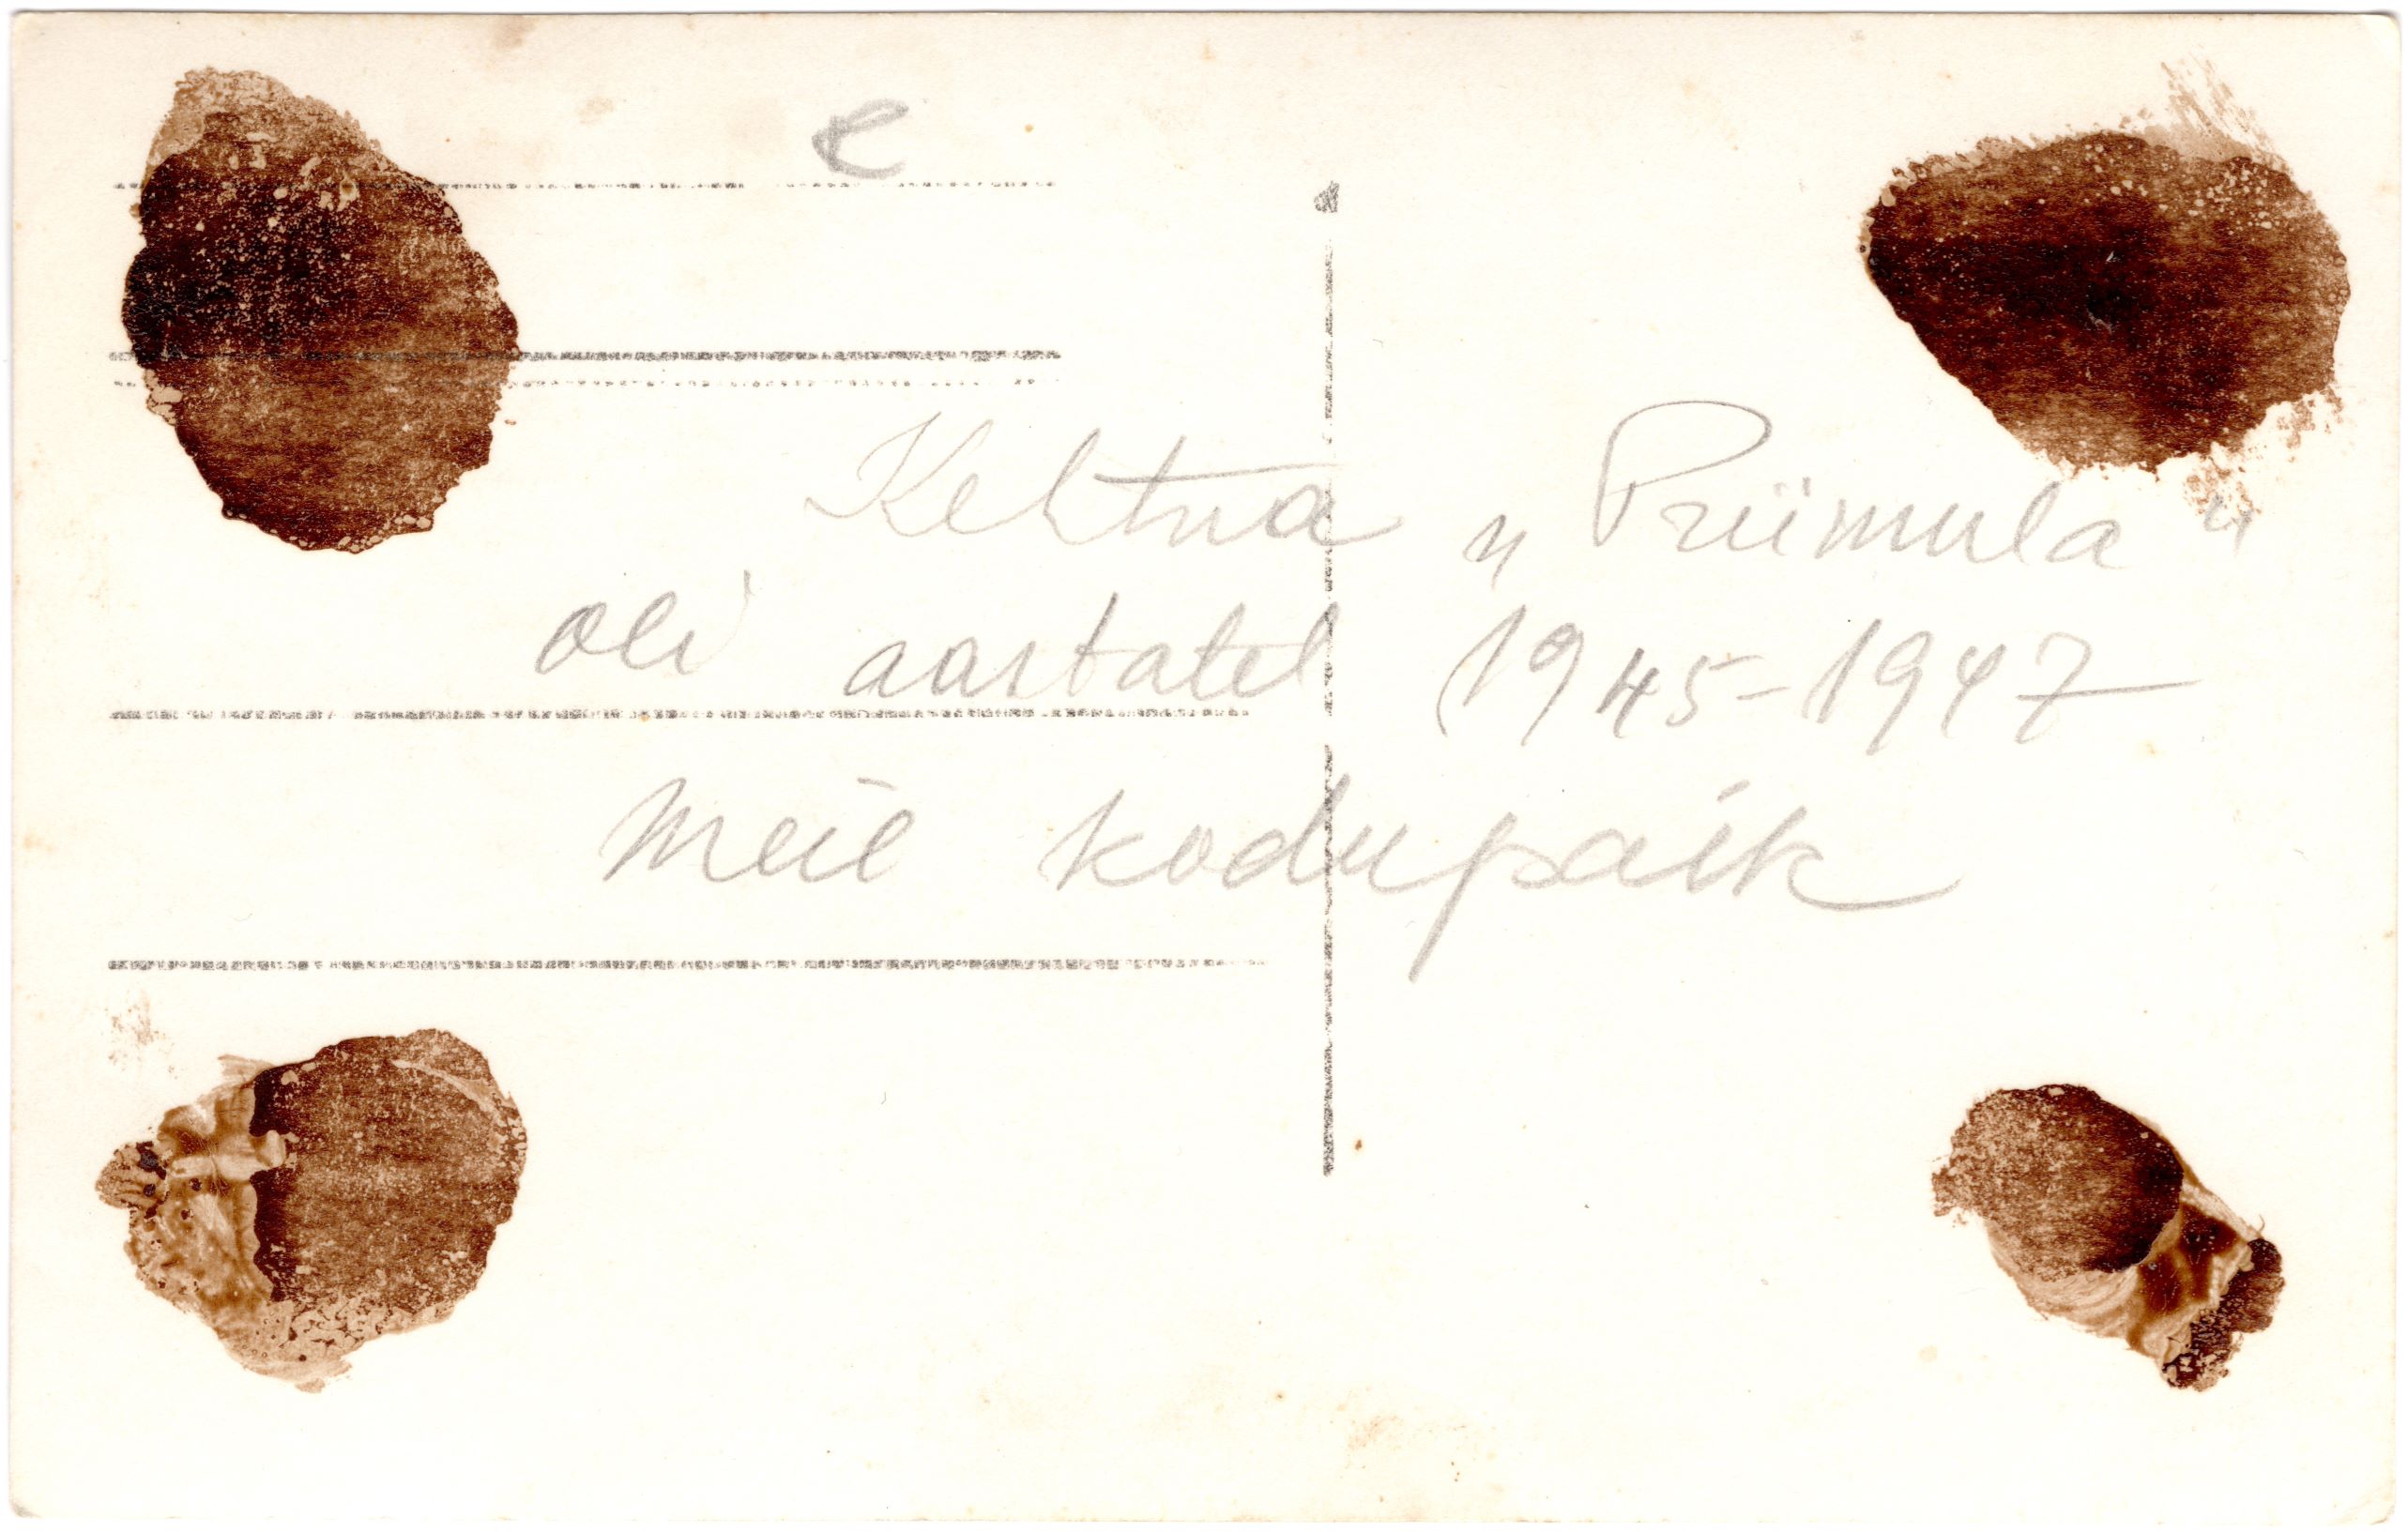 e
Kehtna „Priimula"
oli aastatel 1945-1947
meie kodupaik